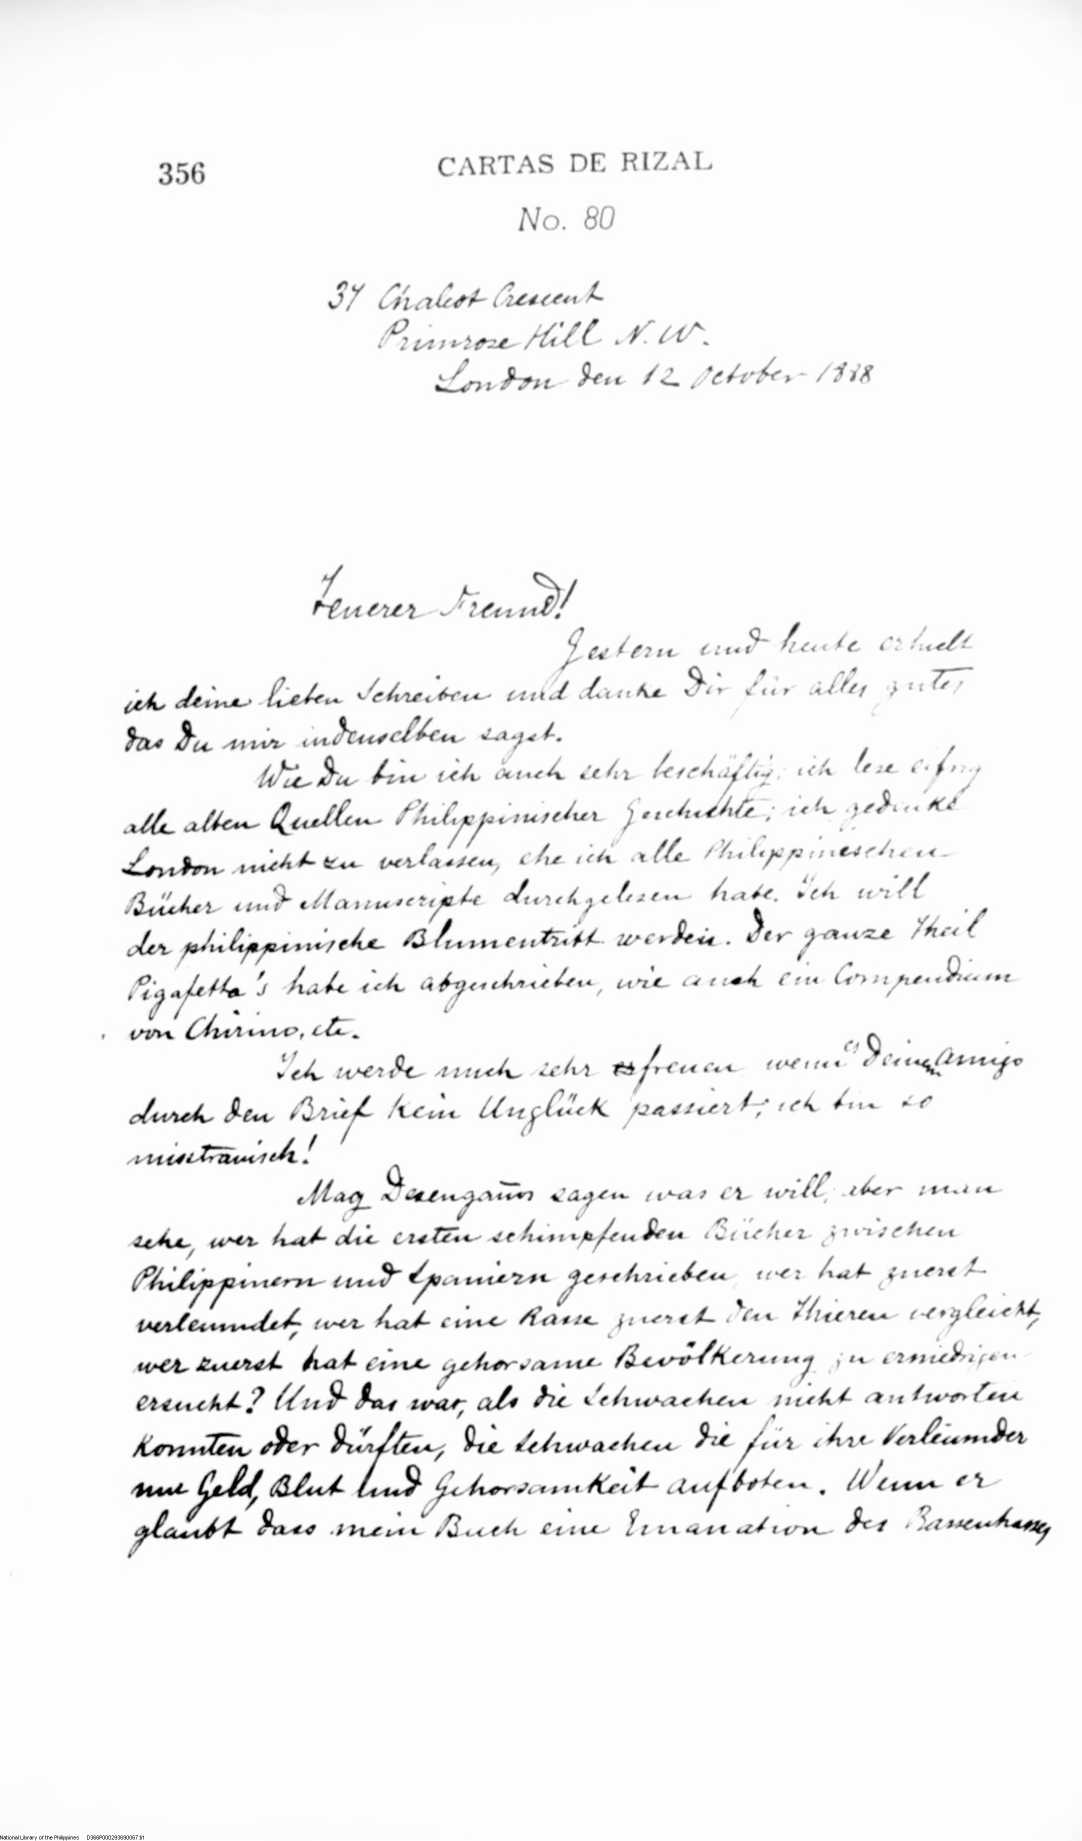 356
CARTAS DE RIZAL
No. 80
37 Chalcot Crescent
Primrose Hill N. W.
London den 12 October 1888
Teuerer Freund!
Gestern und heute erhielt
ich deine lieben Schreiben und danke Dir für alles gutes
das Du mir indenselben sagst.
Wie Du bin ich auch sehr beschäftig; ich lese eifrig
alle alten Quellen Philippinischer Geschichte; ich gedenke
London nicht zu verlassen, ehe ich alle Philippineschen
Bücher und Manuscripte durchgelesen habe. Ich will
der philippinische Blumentritt werden. Der ganze Theil
Pigafetta's habe ich abgeschrieben, wie auch ein Compendium
von Chirino, etc.
Ich werde mich sehr freuen wenn es Deinem Amigo
durch den Brief kein Unglück passiert; ich bin so
misstrauisch!
Mag Desengaños sagen was er will; aber man
sehe, wer hat die ersten schimpfenden Bücher zwischen
Philippinern und Spaniern geschrieben, wer hat zuerst
verleumdet, wer hat eine Rasse zuerst den Thieren vergleicht,
wer zuerst hat eine gehorsame Bevölkerung zu erniedrigen
ersucht? Und das war, als die Schwachen nicht antworten
konnten oder dürften, die Schwachen die für ihre Verleumder
nur Geld, Blut und Gehorsamkeit aufboten. Wenn er
glaubt dass mein Buch eine Emanation des Rassenhasses
National Library of the Philippines